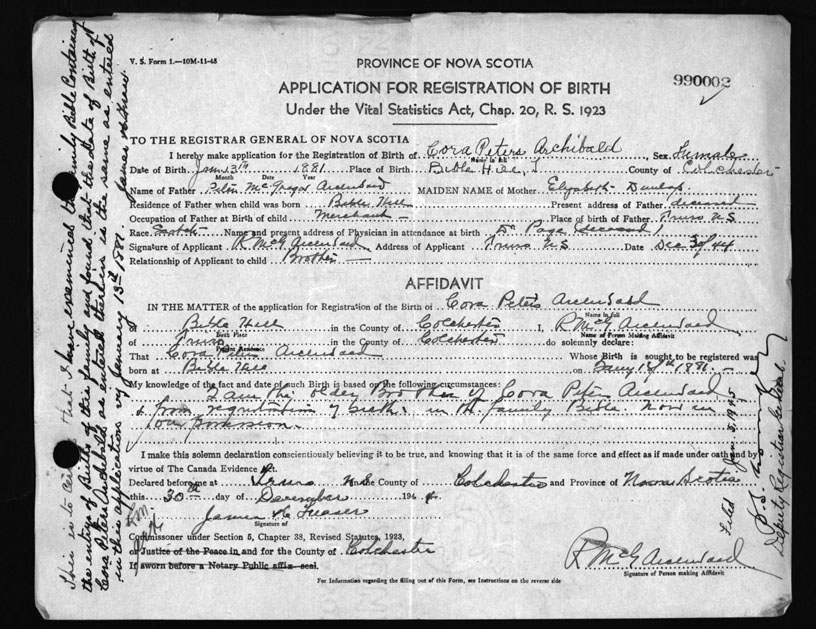 V. S. Form 1.—10M-11-45
PROVINCE OF NOVA SCOTIA
990002
APPLICATION FOR REGISTRATION OF BIRTH
Under the Vital Statistics Act, Chap. 20, R. S. 1923
TO THE REGISTRAR GENERAL OF NOVA SCOTIA
I hereby make application for the Registration of Birth of Cora Peters Archibald Sex Female
Name in full
Date of Birth Jany 13th 1881 Place of Birth Bible Hill County of Colchester
Month Date Year
Name of Father Peter McGregor Archibald MAIDEN NAME of Mother Elizabeth Dunlap
Residence of Father when child was born Bible Hill Present address of Father deceased
Occupation of Father at Birth of child Merchant — Place of birth of Father Truro N S
Race Scotch Name and present address of Physician in attendance at birth Dr Page deceased
Signature of Applicant R McG Archibald Address of Applicant Truro N S Date Dec 30/44
Relationship of Applicant to child Brother —
AFFIDAVIT
IN THE MATTER of the application for Registration of the Birth of Cora Peters Archibald
Name in full
of Bible Hill in the County of Colchester I, R McG Archibald
Birth Place Name of Person Making Affidavit
of Truro in the County of Colchester do solemnly declare:
Present Residence
That Cora Peters Archibald Whose Birth is sought to be registered was
born at Bible Hill on Jany 13th 1881.—
My knowledge of the fact and date of such Birth is Based on the following circumstances:
I am the older Brother of Cora Peters Archibald
& from registration of birth in the family Bible now in
our possession.
I make this solemn declaration conscientiously believing it to be true, and knowing that it is of the same force and effect as if made under oath and by
virtue of The Canada Evidence Act.
Declared before me at Truro N S in the County of Colchester and Province of Nova Scotia
this 30th day of December 1944.
James A Fraser
Signature of
Commissioner under Section 5, Chapter 38, Revised Statutes, 1923,
or Justice of the Peace in and for the County of Colchester
If sworn before a Notary Public affix seal.
R McG Archibald
Signature of Person making Affidavit
For Information regarding the filling out of this Form, see Instructions on the reverse side
This is to Certify that I have examined the family Bible Containing
the entry of Births of this family and found that the date of Birth of
Cora Peters Archibald as entered therein is the same as entered
in this application viz January 13th 1881. James A Fraser.
Filed Jan. 5, 1945
Deputy Registrar General